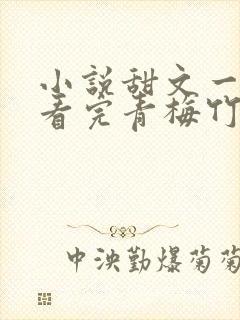 小説甜文一
看完青梅竹
中泱勤爆菊菊